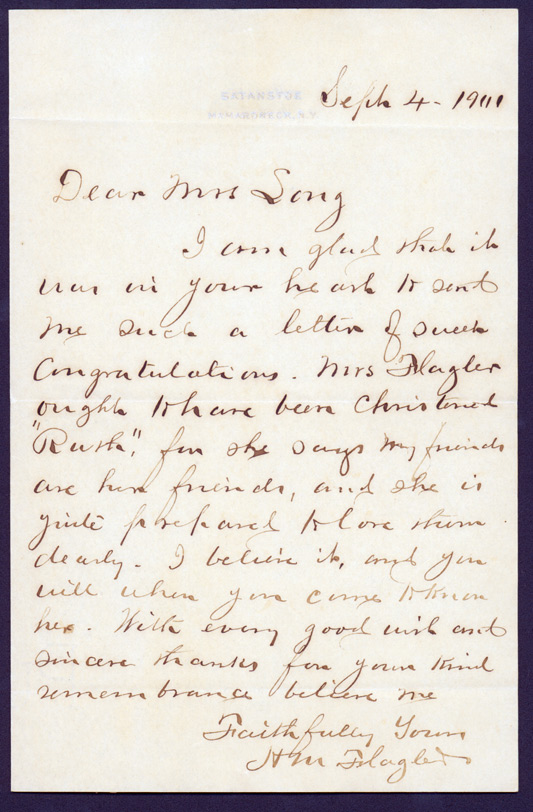 SATANSTOE
MAMARONECK, N.Y.
Sept 4 - 1901
Dear Mrs Long
I am glad that it
was in your heart to send
me such a letter of sweet
Congratulations. Mrs Flagler
ought to have been Christened
"Ruth", for she says my friends
are her friends, and she is
quite prepared to love them
dearly. I believe it, and you
will when you come to know
her. With every good wish and
sincere thanks for your kind
remembrance believe me
Faithfully Yours
H M Flagler